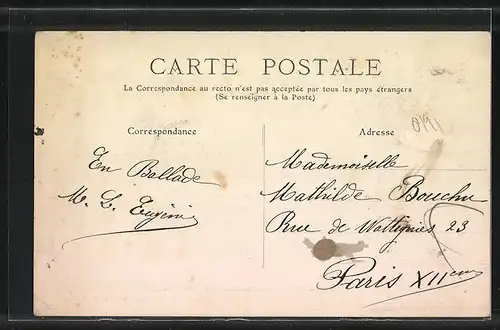 CARTE POSTALE
La Correspondance au recto n'est pas acceptée par tous les pays étrangers
(Se renseigner à la Poste)
Correspondance
Adresse
En Ballade
M. L. Eugénie
Mademoiselle
Mathilde Bouchu
Rue de Wattignies 23
Paris XIIeme